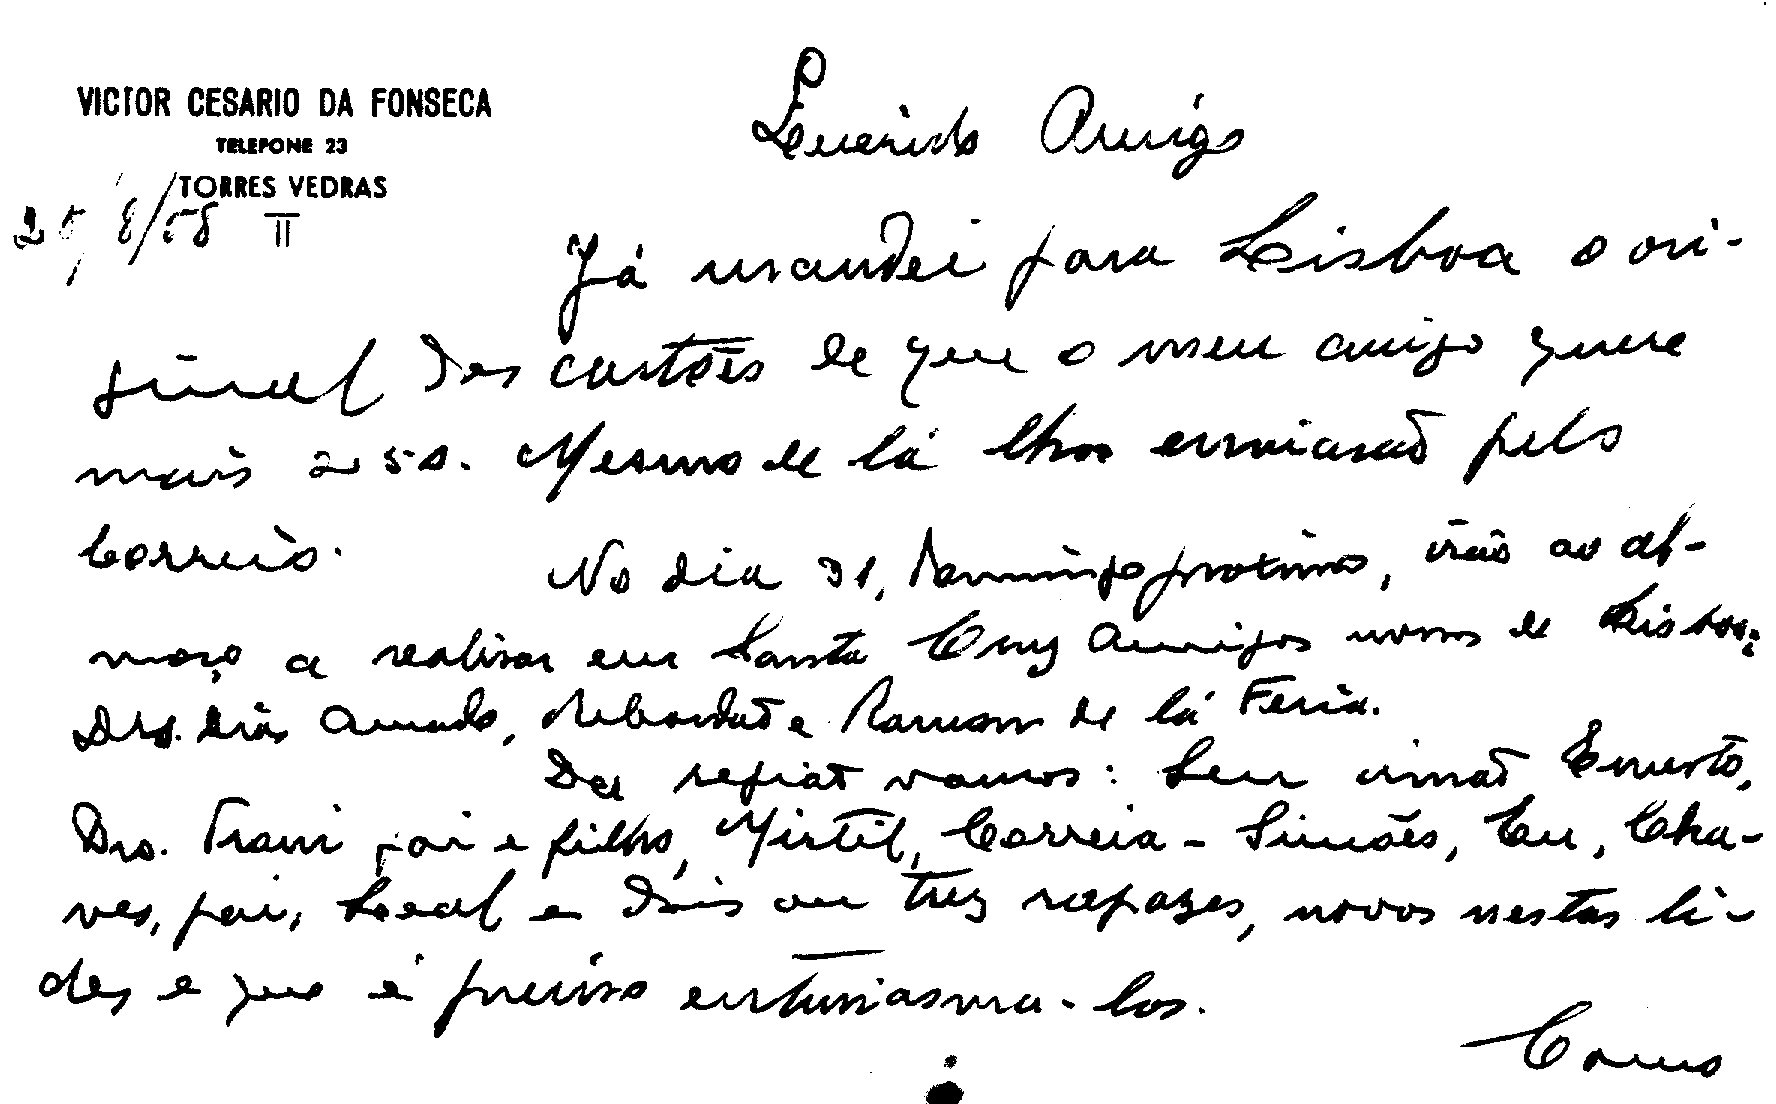 VICTOR CESARIO DA FONSECA
TELEFONE 23
TORRES VEDRAS
25/8/58 II
Querido Amigo
Já mandei para Lisboa o ori-
ginal dos cartões de que o meu amigo quere
mais 250. Mesmo de lá lhos enviarão pelo
Correio.
No dia 31, Domingo próximo, irão ao al-
moço a realisar em Santa Cruz Amigos nossos de Lisboa:
Drs. Dias Amado, Rebordão e Ramon de lá Feria.
Da região vamos: Seu irmão Ernesto,
Drs. Troni pai e filho, Mirtil, Correia - Simões, Eu, Cha-
ves, pai, Leal e dois ou trez rapazes, novos nestas li-
des e que é preciso entusiasma-los.
Como